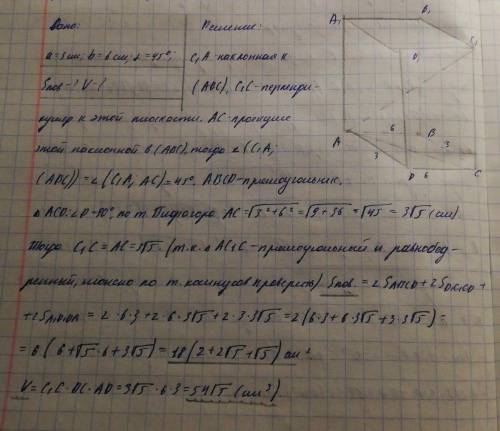 Дано:
Решение:
a=3 см, b=6 см, α=45°;
Sпов-? V-?
C₁A-наклонная к
(ADC), C₁C-перпенди-
куляр к этой плоскости. AC-проекция
этой наклонной в (ADC), тогда ∠(C₁A;
(ADC))=∠(C₁A, AC)=45°. ABCD-прямоугольник,
△ACD: ∠D=90°, по т. Пифагора AC=√3²+6²=√9+36=√45=3√5 (см)
Тогда C₁C=AC=3√5. (т.к. △AC₁C-прямоугольный и равнобед-
ренный, можно по т. косинусов проверить) Sпов.=2SABCD+2SDC₁CD+
+2SAA₁D₁DA=2·6·3+2·6·3√5+2·3·3√5=2(6·3+6·3√5+3·3√5)=
=6(6+√5·6+3√5)=18(2+2√5+√5) см².
V=C₁C·DC·AD=3√5·6·3=54√5 (см³).
A₁
B₁
C₁
D₁
A
6
B
3
3
D
6
C